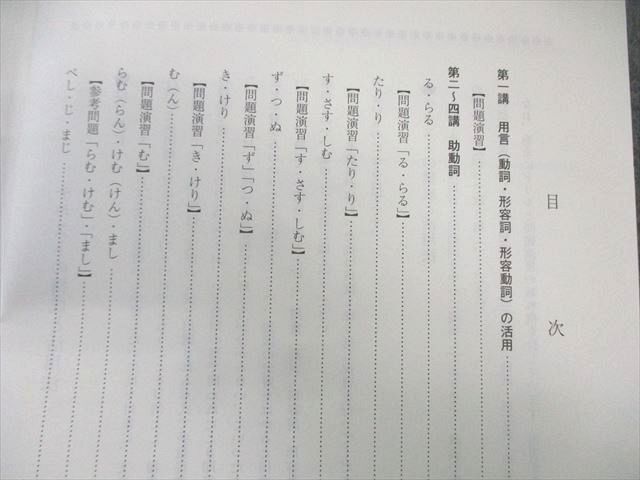 目次
第一講　用言（動詞・形容詞・形容動詞）の活用
【問題演習】
第二〜四講　助動詞
る・らる
【問題演習「る・らる」】
たり・り
【問題演習「たり・り」】
す・さす・しむ
【問題演習「す・さす・しむ」】
ず・つ・ぬ
【問題演習「ず」「つ・ぬ」】
き・けり
【問題演習「き・けり」】
む（ん）
【問題演習「む」】
らむ（らん）・けむ（けん）・まし
【参考問題「らむ・けむ」・「まし」】
べし・じ・まじ